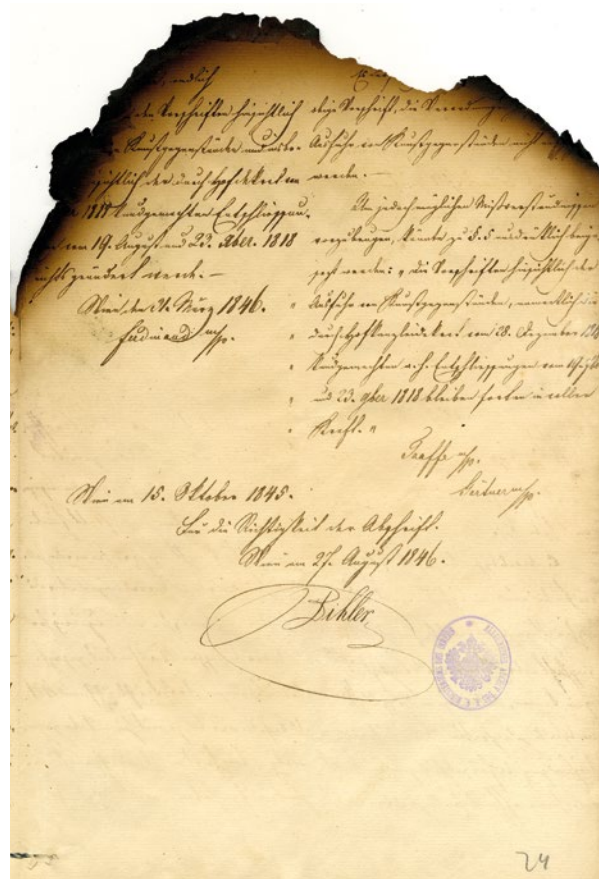 endlich
den Vorschriften hinsichtlich
Kunstgegenstände und insbe-
sichtlich der durch Hofdekret vom
1818 kundgemachten Entschließun-
vom 19. August und 23. 9ber. 1818
nichts geändert werde.—
Wien den 21. März 1846.
Ferdinand mp.
obige Vorschrift, die
Ausfuhr von Kunstgegenständen nicht
werden.—
Um jedoch möglichen Mißverständnissen
vorzubeugen, könnte zu §. 5 ausdrücklich beige-
setzt werden: „die Vorschriften hinsichtlich der
„ Ausfuhr von Kunstgegenständen, namentlich die
„ durch Hofkanzleidekret vom 28. Dezember
„ kundgemachten a. h. Entschließungen vom 19.
„ und 23. 9ber 1818 bleiben fortan in voller
„ Kraft.“
mp.
mp.
Wien am 15. Oktober 1845.
Für die Richtigkeit der Abschrift.
Wien am 27. August 1846.
Bihler
24